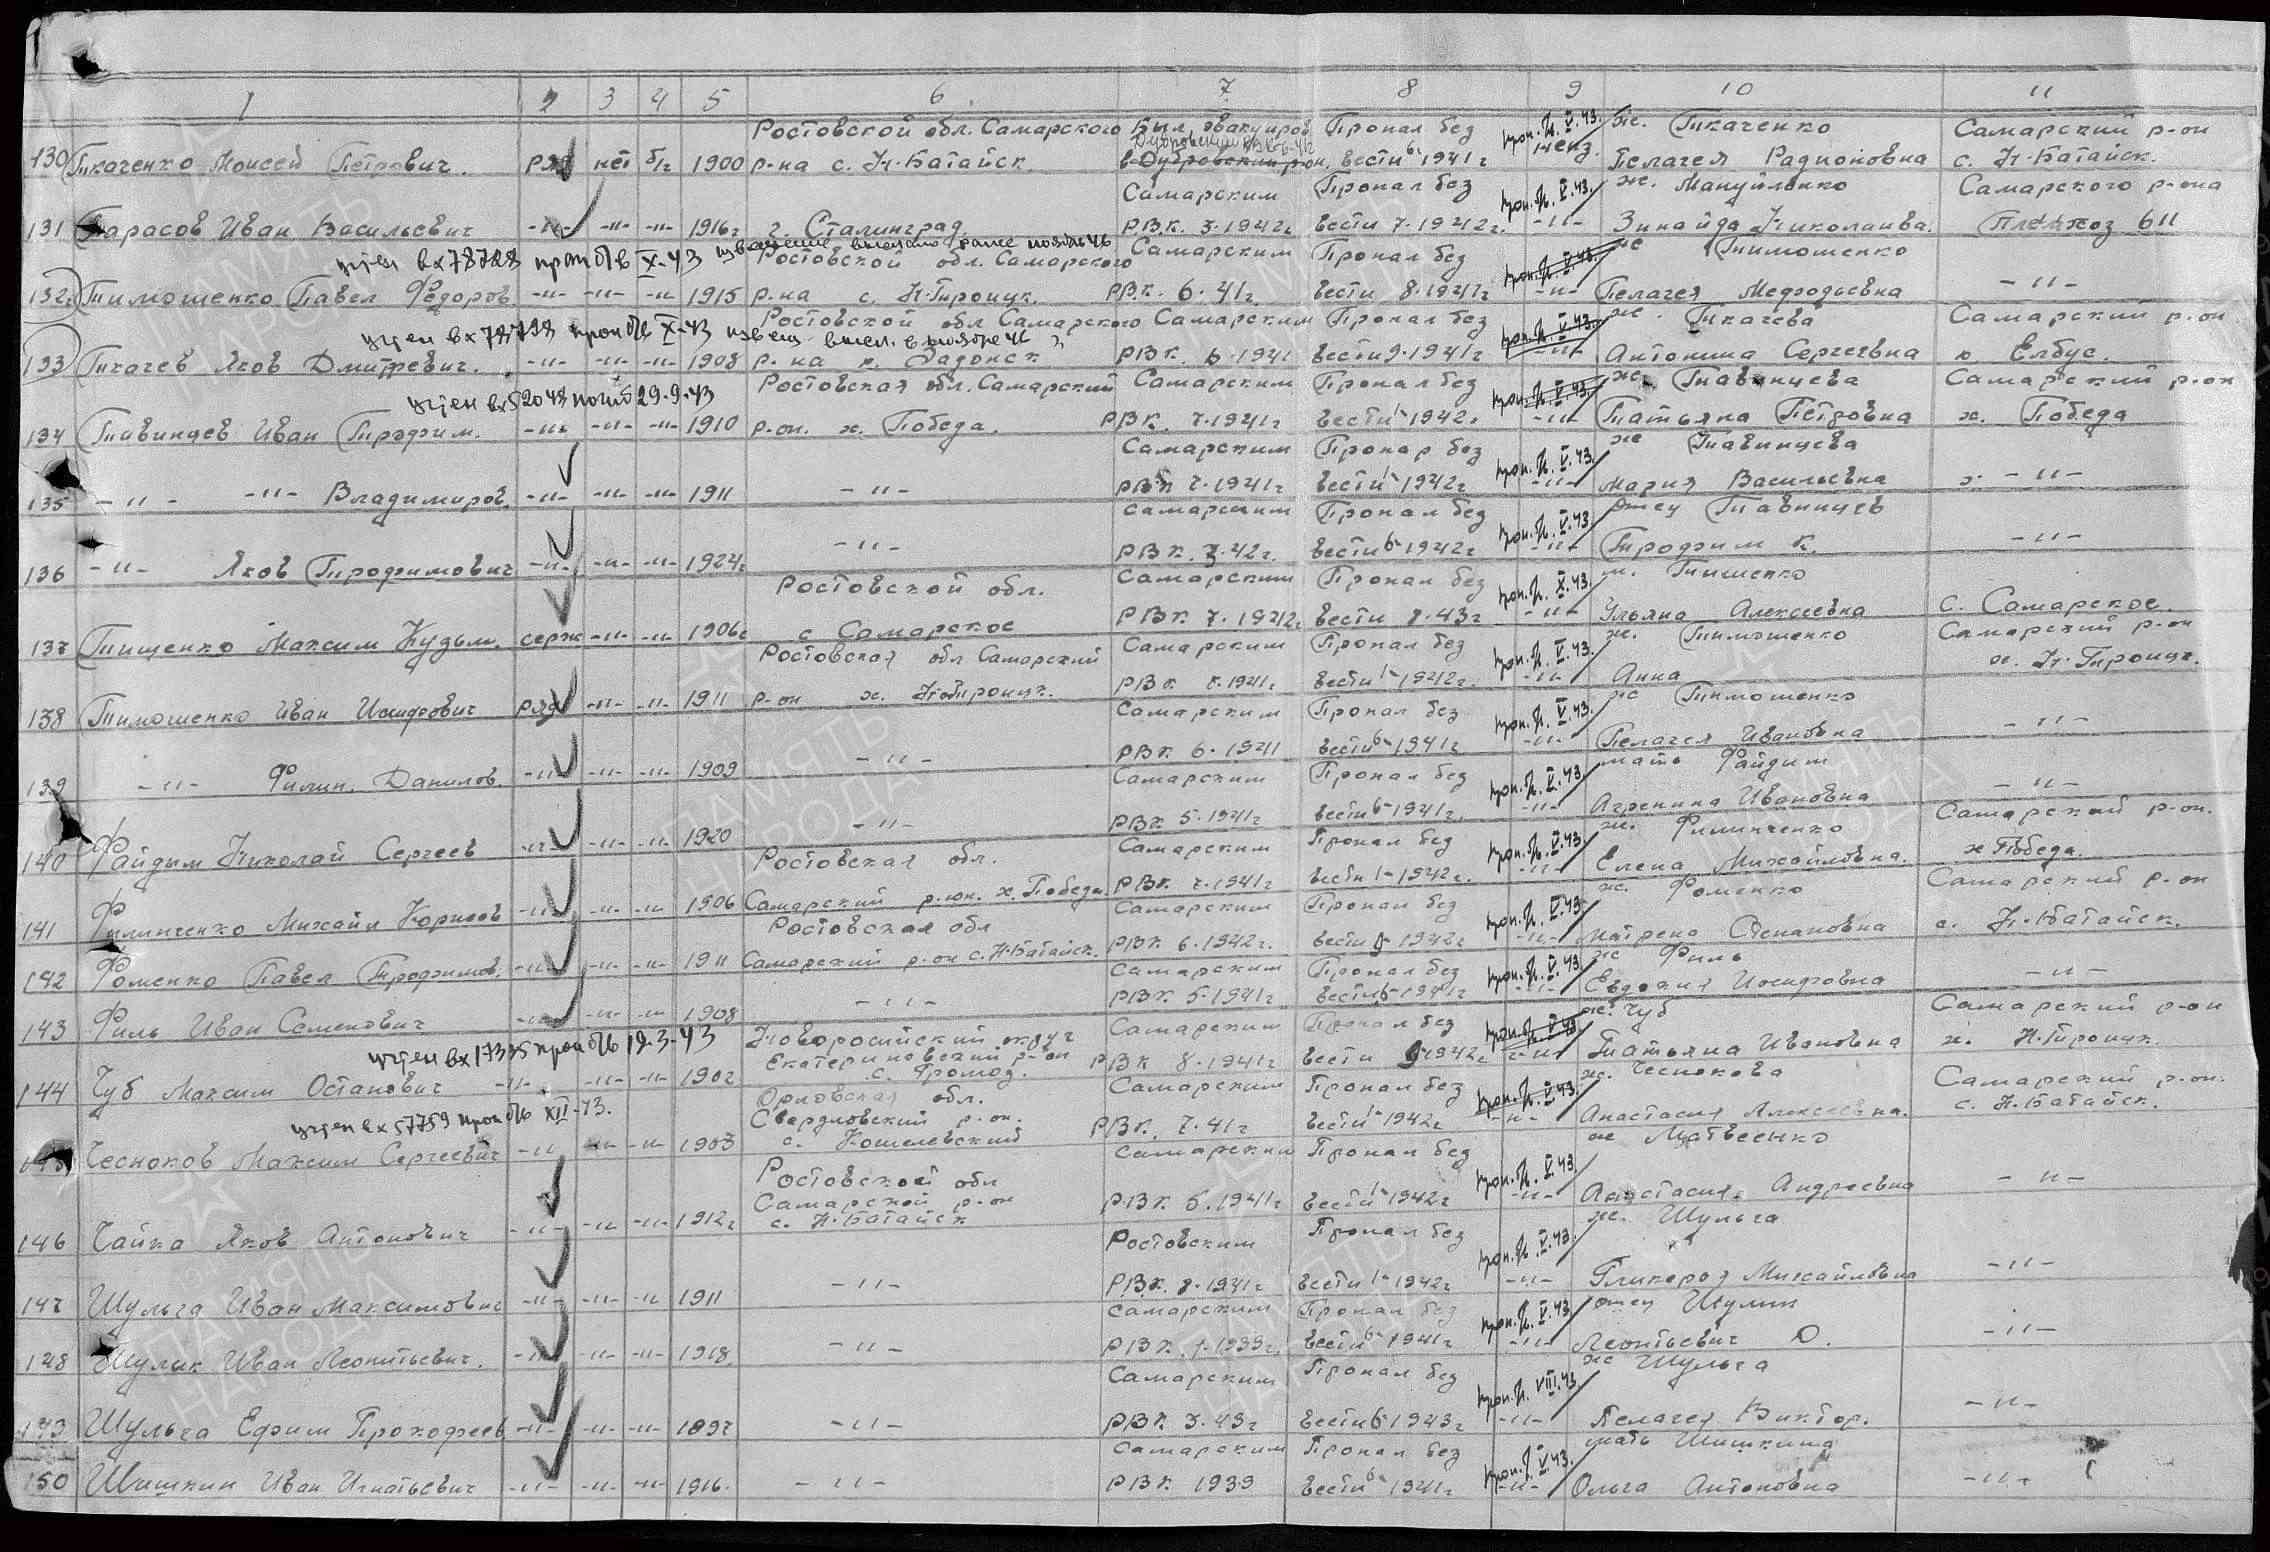 1 2 3 4 5 6 7 8 9 10 11
Ростовской обл. Самарского Был эвакуиров Пропал без проп. б/в. V.43. ж. Ткаченко Самарский р-он
130 Ткаченко Моисей Петрович ряд нет б/п 1900 р-на с. Н-Батайск. вести 6-1941г Пелагея Радионовна с. Н-Батайск.
Самарским Пропал без V.43. ж. Мануйленко Самарского р-она
131 Тарасов Иван Васильевич -"- -"- -"- 1916г г. Сталинград РВК. 3.1942г вести 7-1942г. -"- Зинайда Николаивна. Племхоз 611
учтен вх 78728 проп б/в X-43 извещение выслано ранее ноябрь 46
Ростовской обл. Самарского Самарским Пропал без V.43. ж Тимошенко
132 Тимошенко Павел Федоров. -"- -"- -"- 1915 р-на с. Н-Троицк. РВК. 6.41г. вести 8.1941г -"- Пелагея Мефодьевна -"-
учтен вх 78798 проп б/в X-43 извещ высл. в ноябре 46
Ростовской обл Самарского Самарским Пропал без V.43. ж. Ткачева Самарский р-он
133 Ткачев Яков Дмитревич. -"- -"- -"- 1908 р-на х. Задонск РВК. 6.1941 вести 9.1941г -"- Антонина Сергеевна х. Елбус.
учтен вх 52048 погиб 29.9.43
Ростовская обл. Самарский Самарским Пропал без V.43. ж. Тавинцева Самарский р-он
134 Тавинцев Иван Трофим. -"- -"- -"- 1910 р-он. х. Победа. РВК. 7.1941г вести 1-1942г. -"- Татьяна Петровна х. Победа
Самарским Пропал без V.43. ж Тавинцева
135 -"- -"- Владимиров. -"- -"- -"- 1911 -"- РВК 7.1941г вести 1-1942г -"- Мария Васильевна х. -"-
Самарским Пропал без V.43. отец Тавинцев
136 -"- Яков Трофимович -"- -"- -"- 1924г -"- РВК. 3.42г. вести 6-1942г -"- Трофим К. -"-
Ростовской обл. Самарским Пропал без X.43. ж. Тищенко
137 Тищенко Максим Кузьм. серж -"- -"- 1906г с Самарское РВК 7.1942г вести 8.43г -"- Ульяна Алексеевна с. Самарское.
Ростовская обл Самарский Самарским Пропал без V.43. ж. Тимошенко Самарский р-он
138 Тимошенко Иван Иосифович ряд -"- -"- 1911 р-он х. Н-Троицк. РВК 8.1941г вести 1-1942г. -"- Анна х. Н-Троицк.
Самарским Пропал без V.43. ж Тимошенко
139 -"- Филип. Данилов. -"- -"- -"- 1909 -"- РВК 6.1941 вести 6-1941г -"- Пелагея Ивановна -"-
Самарским Пропал без V.43. мать Файдым
140 Файдым Николай Сергеев -"- -"- -"- 1920 -"- РВК 5.1941г вести 6-1941г. -"- Агрепина Ивановна -"-
Ростовская обл. Самарским Пропал без V.43. ж. Филипченко Самарский р-он.
141 Филипченко Михаил Корнеев -"- -"- -"- 1906 Самарский р-он. х. Победа РВК 7.1941г вести 1-1942г. -"- Елена Михайловна. х Победа.
Ростовская обл Самарским Пропал без V.43. ж. Фоменко Самарский р-он
142 Фоменко Павел Трофимов. -"- -"- -"- 1911 Самарский р-он с. Н-Батайск. РВК 6.1942г. вести 1942г -"- Матрена Степановна с. Н-Батайск.
Самарским Пропал без V.43. ж Филь
143 Филь Иван Семенович -"- -"- -"- 1908 -"- РВК 5.1941г вести 6-1941г -"- Евдокия Иосифовна -"-
учтен вх 17335 проп б/в 19.3.43
Новоросийский округ Самарским Пропал без V.43. ж. Чуб Самарский р-он
Екатериновский р-он
144 Чуб Максим Остапович -"- -"- -"- 1902 с. Громоз. РВК 8.1941г вести 9 1942г -"- Татьяна Ивановна х. Н-Троицк.
учтен вх 57759 проп б/в XII-43.
Орловская обл. Самарским Пропал без V.43. ж. Чеснокова Самарский р-он.
Свердловский р-он.
145 Чесноков Максим Сергеевич -"- -"- -"- 1903 с. Кошелевский РВК. 7.41г вести 1-1942г -"- Анастасия Алексеевна. с. Н-Батайск.
Ростовской обл Самарским Пропал без V.43. ж Матвеенко
Самарской р-он
146 Чайка Яков Антонович -"- -"- -"- 1912г с. Н-Батайск РВК 6.1941г вести 1-1942г -"- Анастасия Андреевна -"-
Ростовским Пропал без V.43. ж. Шульга
147 Шульга Иван Максимович -"- -"- -"- 1911 -"- РВК. 8.1941г вести 1-1942г -"- Гликерая Михайловна -"-
Самарским Пропал без V.43. отец Шулик
148 Шулик Иван Леонтьевич. -"- -"- -"- 1918 -"- РВК. 1.1939г. вести 6-1941г -"- Леонтьевич О. -"-
Самарским Пропал без VIII.43. ж Шульга
149 Шульга Ефим Прокофеев -"- -"- -"- 1897 -"- РВК 3.43г вести 6 1943г -"- Пелагея Виктор. -"-
Самарским Пропал без V.43. мать Шишкина
150 Шишкин Иван Игнатьевич -"- -"- -"- 1916. -"- РВК 1939 вести 6-1941г -"- Ольга Антоновна -"-
ПАМЯТЬ НАРОДА